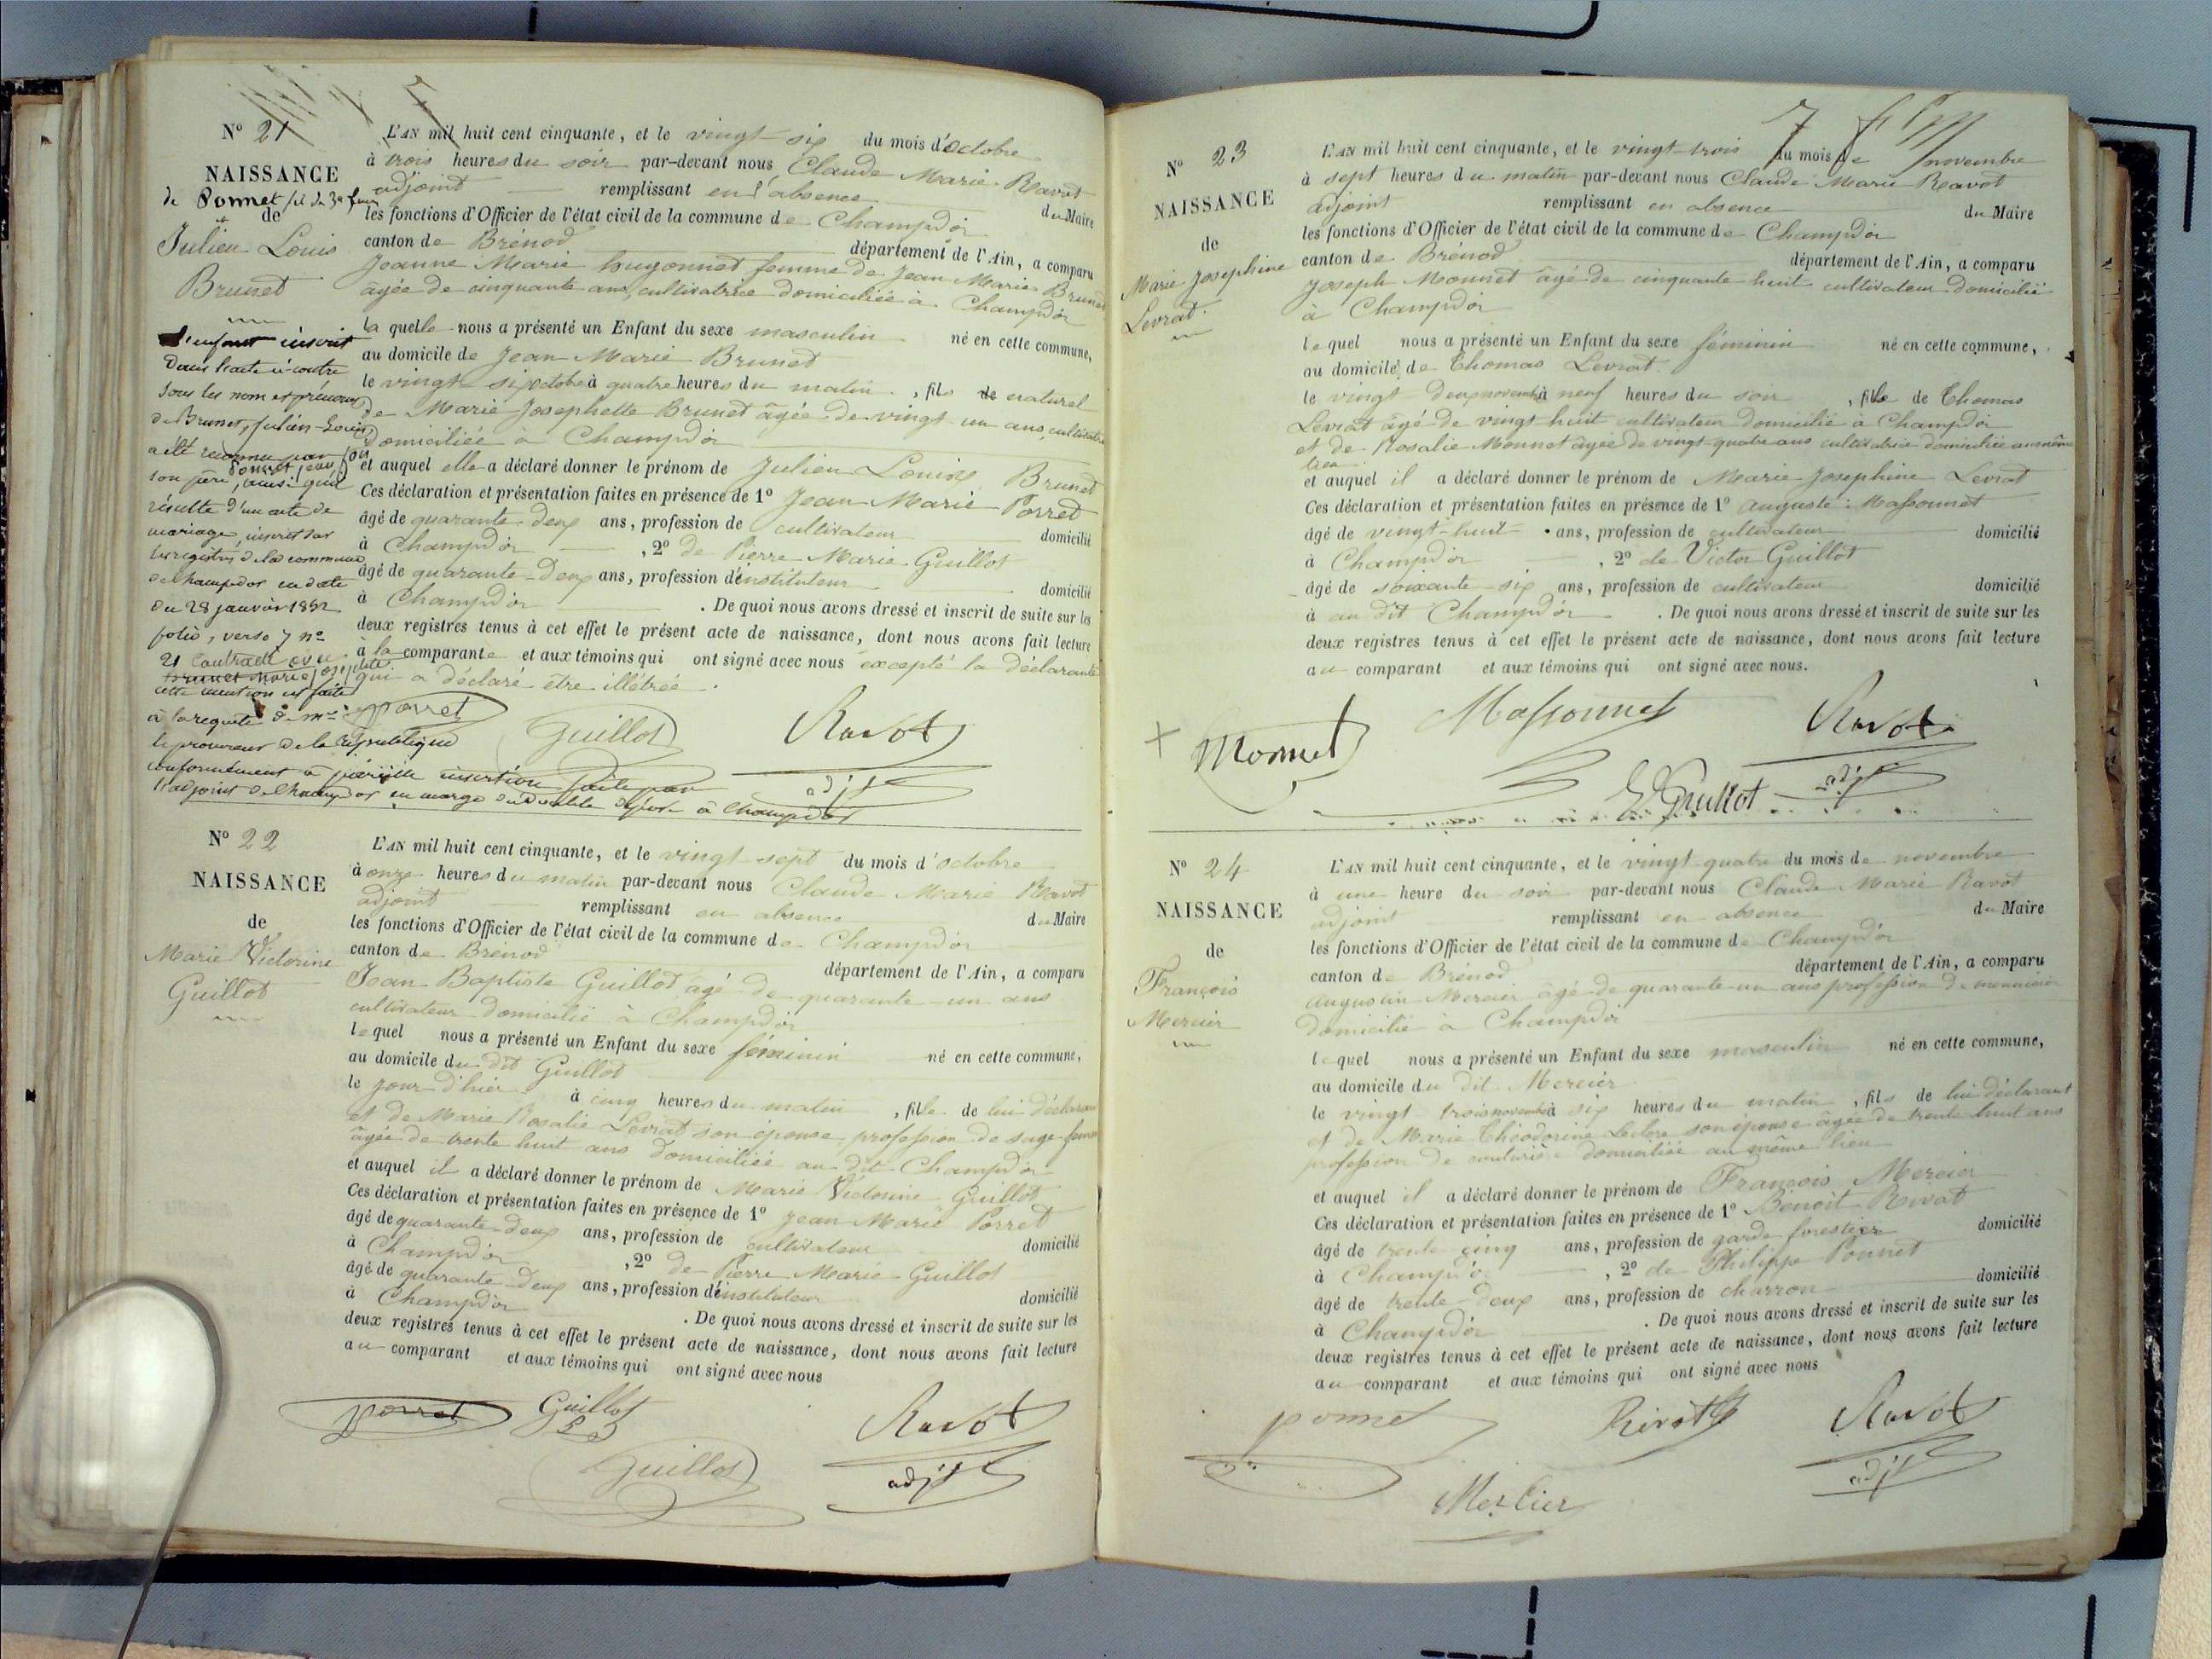 N° 21
NAISSANCE
de Ponnet
de
Julien Louis
Brunet
L'enfant inscrit
dans l'acte ci-contre
sous les nom et prénoms
de Brunet, Julien-Louis
a été reconnu par
Ponnet
son père, ainsi qu'il
résulte d'un acte de
mariage, inscrit sur
les registres de la commune
de Champdor en date
du 28 janvier 1852
folio, verso 7 n°
21 contracté avec
Brunet Marie Josephte
cette mention est faite
à la requête de Mr
le procureur de la République
conformément à pareille insertion faite par
l'adjoint de Champdor en marge du double déposé à Champdor
L'AN mil huit cent cinquante, et le vingt-six du mois d'octobre
à trois heures du soir par-devant nous Claude Marie Ravot
adjoint remplissant en l'absence du Maire
les fonctions d'Officier de l'état civil de la commune de Champdor
canton de Brénod département de l'Ain, a comparu
Jeanne Marie hugonnet femme de Jean Marie Brunet
âgée de cinquante ans, cultivatrice domiciliée à Champdor
la quelle nous a présenté un Enfant du sexe masculin né en cette commune,
au domicile de Jean Marie Brunet
le vingt-six octobre à quatre heures du matin, fils de naturel
de Marie Josephette Brunet âgée de vingt-un ans, cultivatrice
domiciliée à Champdor
et auquel elle a déclaré donner le prénom de Julien Louis Brunet
Ces déclaration et présentation faites en présence de 1° Jean Marie Porret
âgé de quarante-deux ans, profession de cultivateur domicilié
à Champdor, 2° de Pierre Marie Guillot
âgé de quarante-deux ans, profession d'instituteur domicilié
à Champdor. De quoi nous avons dressé et inscrit de suite sur les
deux registres tenus à cet effet le présent acte de naissance, dont nous avons fait lecture
à la comparante et aux témoins qui ont signé avec nous excepté la déclarante
qui a déclaré être illétrée.
Porret Guillot Ravot
adjt
N° 22
NAISSANCE
de
Marie Victorine
Guillot
L'AN mil huit cent cinquante, et le vingt-sept du mois d'octobre
à onze heures du matin par-devant nous Claude Marie Ravot
adjoint remplissant en absence du Maire
les fonctions d'Officier de l'état civil de la commune de Champdor
canton de Brénod département de l'Ain, a comparu
Jean Baptiste Guillot âgé de quarante-un ans
cultivateur domicilié à Champdor
lequel nous a présenté un Enfant du sexe féminin né en cette commune,
au domicile du dit Guillot
le jour d'hier à cinq heures du matin, fille de lui déclarant
et de Marie Rosalie Levrat son épouse, profession de sage-femme
âgée de trente huit ans domiciliée au dit Champdor
et auquel il a déclaré donner le prénom de Marie Victorine Guillot
Ces déclaration et présentation faites en présence de 1° Jean Marie Porret
âgé de quarante-deux ans, profession de cultivateur domicilié
à Champdor, 2° de Pierre Marie Guillot
âgé de quarante-deux ans, profession d'instituteur domicilié
à Champdor. De quoi nous avons dressé et inscrit de suite sur les
deux registres tenus à cet effet le présent acte de naissance, dont nous avons fait lecture
au comparant et aux témoins qui ont signé avec nous
Porret Guillot Ravot
Guillot adjt
N° 23
NAISSANCE
de
Marie Josephine
Levrat
L'AN mil huit cent cinquante, et le vingt-trois du mois de novembre
à sept heures du matin par-devant nous Claude Marie Ravot
adjoint remplissant en absence du Maire
les fonctions d'Officier de l'état civil de la commune de Champdor
canton de Brénod département de l'Ain, a comparu
Joseph Monnet âgé de cinquante huit cultivateur domicilié
à Champdor
lequel nous a présenté un Enfant du sexe féminin né en cette commune,
au domicile de Thomas Levrat
le vingt-deux novembre à neuf heures du soir, fille de Thomas
Levrat âgé de vingt huit cultivateur domicilié à Champdor
et de Rosalie Monnet âgée de vingt-quatre ans cultivatrice domiciliée au même
lieu
et auquel il a déclaré donner le prénom de Marie Josephine Levrat
Ces déclaration et présentation faites en présence de 1° Auguste Massonnet
âgé de vingt-huit ans, profession de cultivateur domicilié
à Champdor, 2° de Victor Guillot
âgé de soixante-six ans, profession de cultivateur domicilié
à au dit Champdor. De quoi nous avons dressé et inscrit de suite sur les
deux registres tenus à cet effet le présent acte de naissance, dont nous avons fait lecture
au comparant et aux témoins qui ont signé avec nous.
Monnet Massonnet Ravot
Guillot adjt
N° 24
NAISSANCE
de
François
Mercier
L'AN mil huit cent cinquante, et le vingt-quatre du mois de novembre
à une heure du soir par-devant nous Claude Marie Ravot
adjoint remplissant en absence du Maire
les fonctions d'Officier de l'état civil de la commune de Champdor
canton de Brénod département de l'Ain, a comparu
Augustin Mercier âgé de quarante-un ans profession de menuisier
domicilié à Champdor
lequel nous a présenté un Enfant du sexe masculin né en cette commune,
au domicile du dit Mercier
le vingt trois novembre à six heures du matin, fils de lui déclarant
et de Marie Théodorine Leclerc son épouse âgée de trente huit ans
profession de couturière domiciliée au même lieu
et auquel il a déclaré donner le prénom de François Mercier
Ces déclaration et présentation faites en présence de 1° Benoit Rivat
âgé de trente-cinq ans, profession de garde forestier domicilié
à Champdor, 2° de Philippe Ponnet
âgé de trente-deux ans, profession de charron domicilié
à Champdor. De quoi nous avons dressé et inscrit de suite sur les
deux registres tenus à cet effet le présent acte de naissance, dont nous avons fait lecture
au comparant et aux témoins qui ont signé avec nous
ponnet Rivat Ravot
Mercier adjt